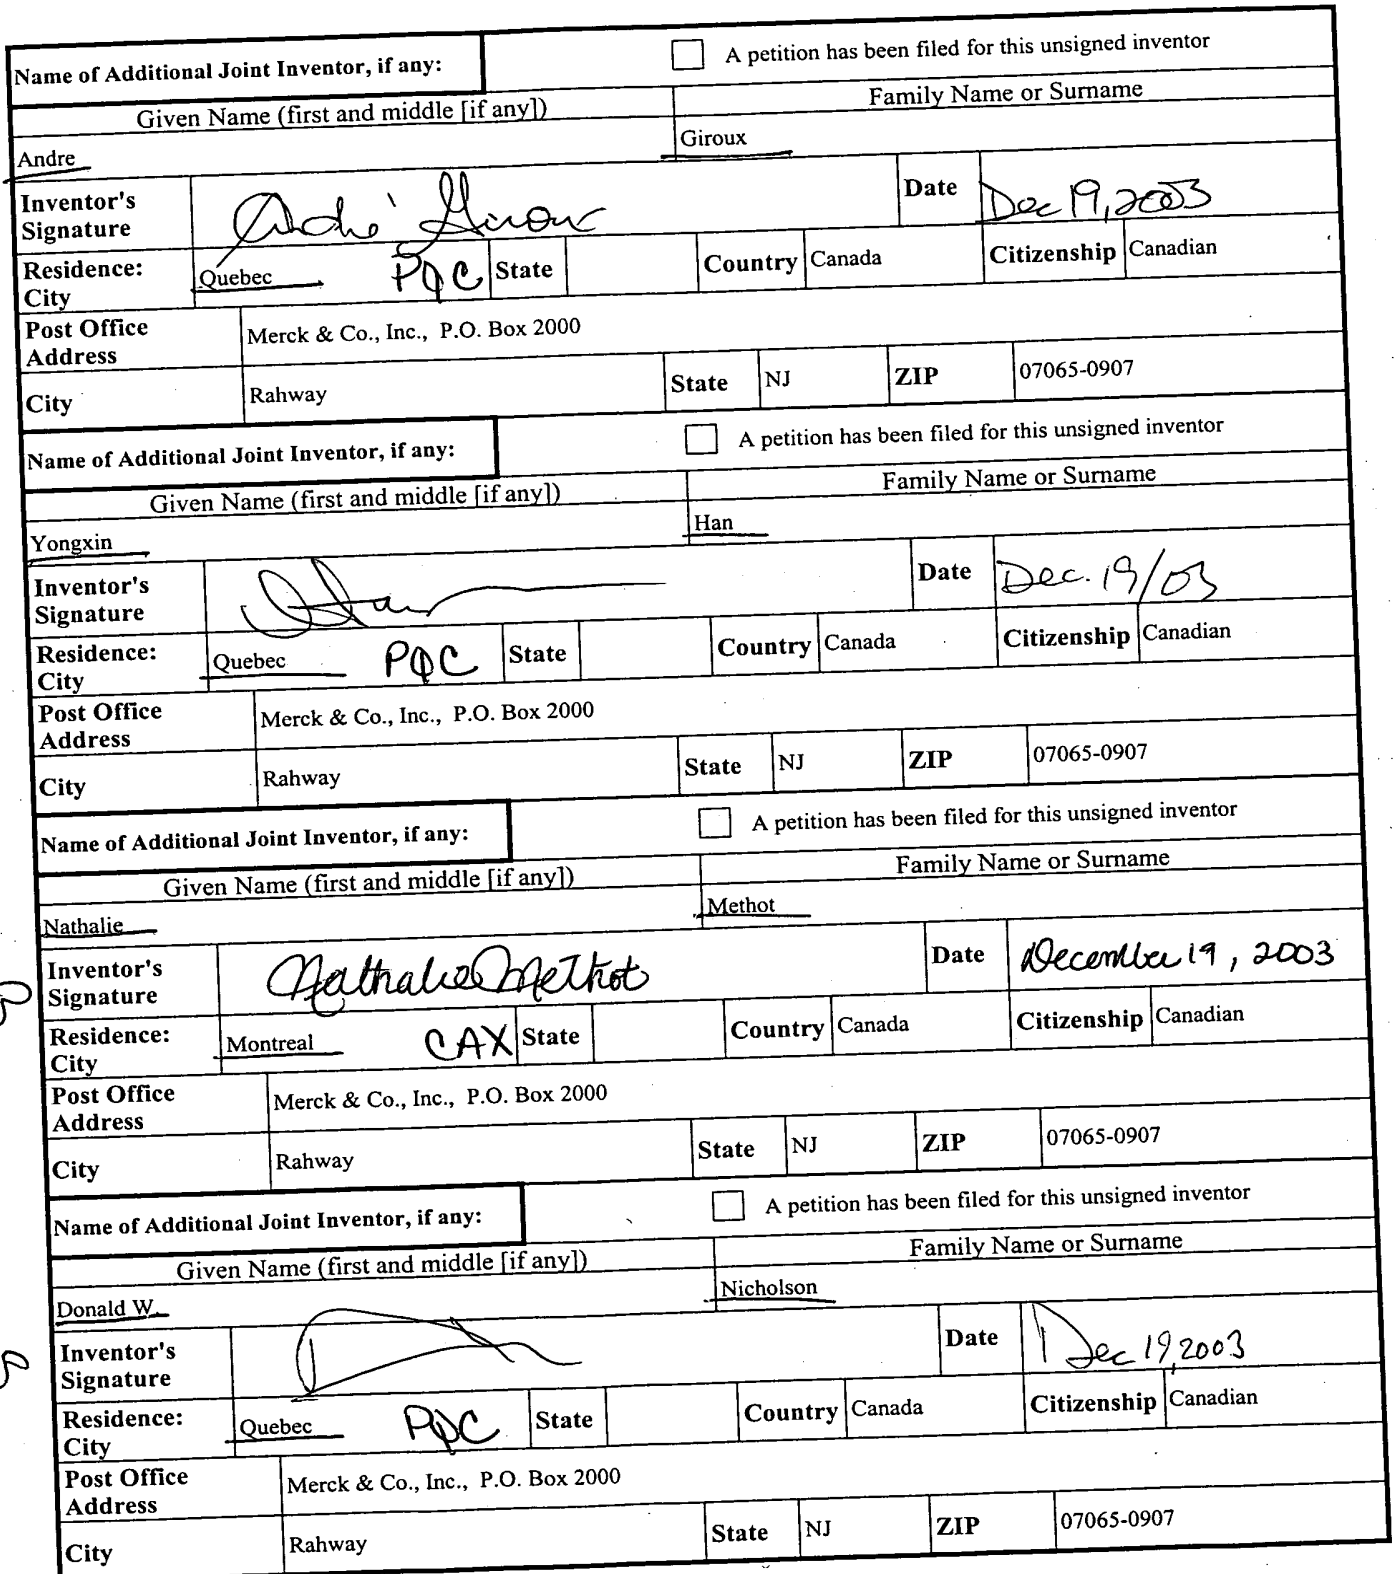 Name of Additional Joint Inventor, if any: A petition has been filed for this unsigned inventor
Given Name (first and middle [if any]) Family Name or Surname
Andre Giroux
Inventor's Signature André Giroux Date Dec 19, 2003
Residence: City Quebec PQC State Country Canada Citizenship Canadian
Post Office Address Merck & Co., Inc., P.O. Box 2000
City Rahway State NJ ZIP 07065-0907
Name of Additional Joint Inventor, if any: A petition has been filed for this unsigned inventor
Given Name (first and middle [if any]) Family Name or Surname
Yongxin Han
Inventor's Signature Date Dec. 19/03
Residence: City Quebec PQC State Country Canada Citizenship Canadian
Post Office Address Merck & Co., Inc., P.O. Box 2000
City Rahway State NJ ZIP 07065-0907
Name of Additional Joint Inventor, if any: A petition has been filed for this unsigned inventor
Given Name (first and middle [if any]) Family Name or Surname
Nathalie Methot
Inventor's Signature Nathalie Methot Date December 19, 2003
Residence: City Montreal CAX State Country Canada Citizenship Canadian
Post Office Address Merck & Co., Inc., P.O. Box 2000
City Rahway State NJ ZIP 07065-0907
Name of Additional Joint Inventor, if any: A petition has been filed for this unsigned inventor
Given Name (first and middle [if any]) Family Name or Surname
Donald W. Nicholson
Inventor's Signature Date Dec 19, 2003
Residence: City Quebec PQC State Country Canada Citizenship Canadian
Post Office Address Merck & Co., Inc., P.O. Box 2000
City Rahway State NJ ZIP 07065-0907